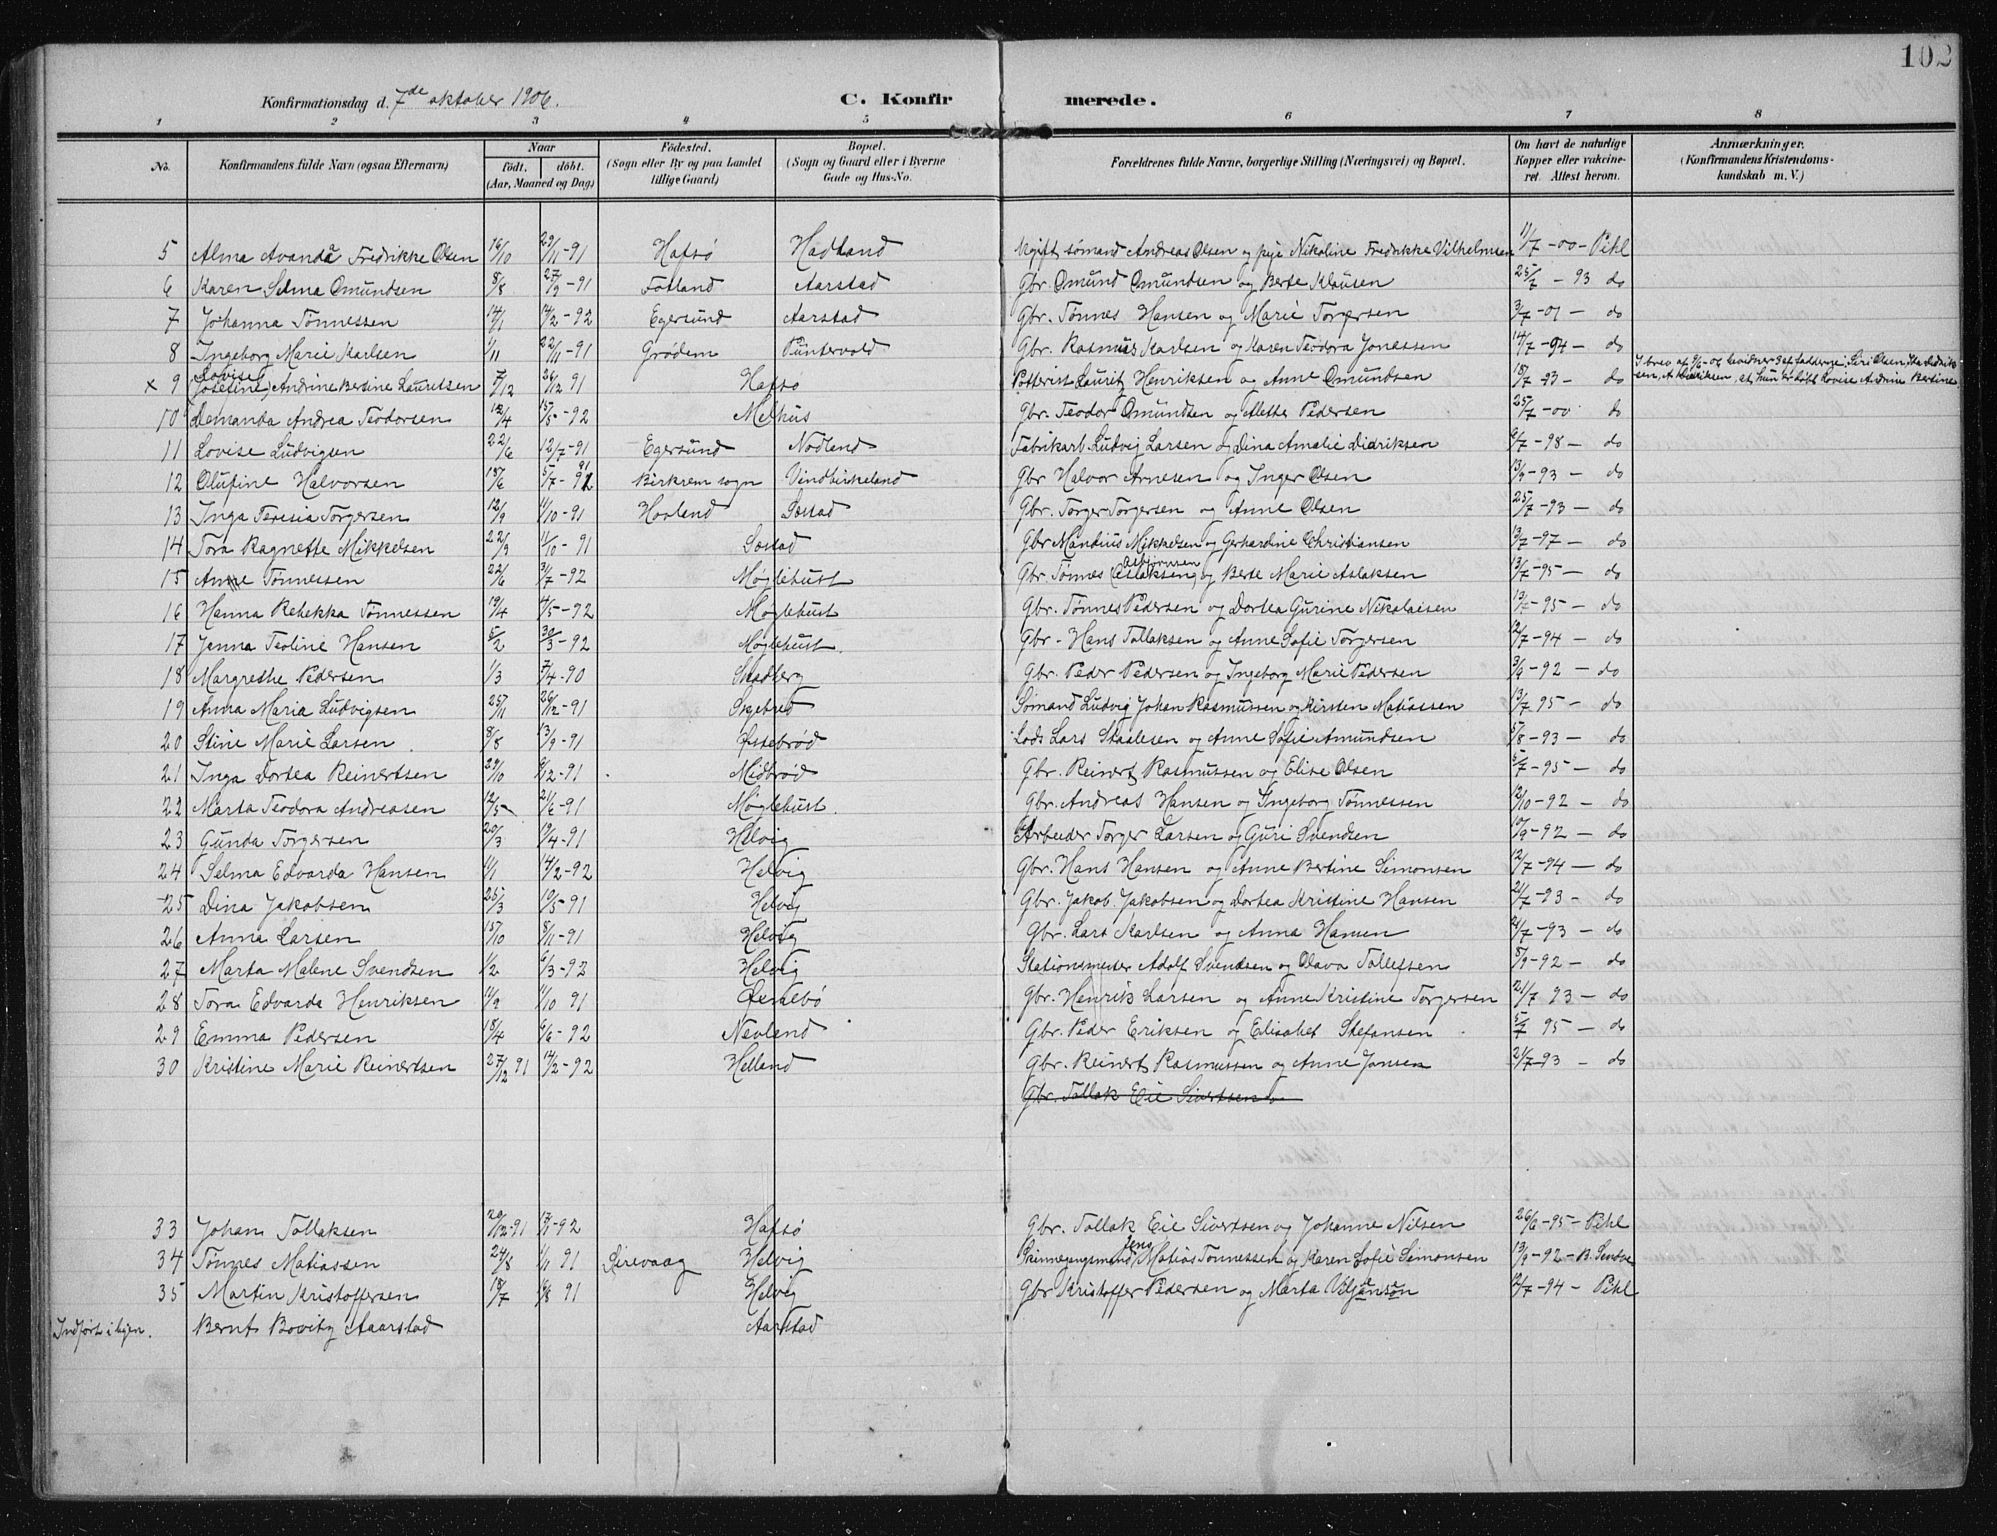 102
Konfirmationsdag d. 7de oktober 1906. C. Konfirmerede.
1 2 3 4 5 6 7 8
No. Konfirmandens fulde Navn (ogsaa Efternavn) Naar født. døbt. (Aar, Maaned og Dag) Fødested. (Sogn eller By og paa Landet tillige Gaard) Bopæl. (Sogn og Gaard eller i Byerne Gade og Hus-No. Forældrenes fulde Navne, borgerlige Stilling (Næringsvei) og Bopæl. Om havt de naturlige Kopper eller vakcineret. Attest herom. Anmærkninger, (Konfirmandens Kristendomskundskab m. V.)
5 Alma Avanda Fredrikke Olsen 16/10 29/11-91 Hafsø Hadland Ugift sømand Andreas Olsen og pige Nikoline Fredrikke Vilhelmsen 11/7-00- Pihl
6 Karen Selma Omundsen 8/8 27/9-91 Fotland Aarstad Gbr. Omund Omundsen og Berte Klausen 25/7-93 do
7 Johanna Tønnessen 14/1 14/2-92 Egersund Aarstad Gbr. Tønnes Hansen og Marie Torgersen 3/7-01- do
8 Ingeborg Marie Karlsen 1/11 22/11-91 Grødem Puntervold Gbr. Rasmus Karlsen og Karen Teodora Jonassen 14/7-94- do
x 9 Lovise (Josefine) Andrine Bertine Lauritsen 7/12 26/12 91 Hafsø Lauritz Henriksen og Anne Omundsen 18/7-93- do
10 Demanda Andrea Teodorsen 12/4 15/5-92 Melhus Gbr. Teodor Omundsen og Mette Pedersen 25/7-00 do
11 Lovise Ludvigsen 22/6 12/7-91 Egersund Nodland Fabrikarb. Ludvig Larsen og Dina Amalie Didriksen 6/7-98- do
12 Olufine Halvorsen 18/6 5/7-91 Birkrem sogn Vindbirkeland Gbr Halvor Arnesen og Inger Olsen 13/9-93- do
13 Inga Teresia Torgersen 12/9 11/10-91 Hovland Sæstad Gbr. Torger Torgersen og Anne Olsen 25/7-93- do
14 Tora Ragnette Mikkelsen 22/9 11/10-91 Sæstad Gbr Mandius Mikkelsen og Gerhardine Christiansen 13/7-97- do
15 Anne Tønnessen 22/6 3/7-92 Møglehust Gbr. Tønnes (Aslaksen) Asbjørnsen og Berte Marie Aslaksen 13/7-95- do
16 Hanna Rebekka Tønnessen 19/4 4/5-92 Møglehust Gbr. Tønnes Pedersen og Dortea Gurine Nikolaisen 13/7-95- do
17 Jenna Teoline Hansen 5/2 30/3-92 Møglehust. Gbr- Hans Tollaksen og Anne Sofie Torgersen 12/7-94- do
18 Margrethe Pedersen 1/3 7/4-90 Stadberg Gbr. Peder Pedersen og Ingeborg Marie Pedersen 3/9-92- do
19 Anna Maria Ludvigsen 25/11 26/12-91 Skebrød Sømand Ludvig Johan Rasmussen og Kirsten Matiassen 13/7 95- do
20 Stine Marie Larsen 8/8 13/9-91 Østebrød Lods Lars Staalesen og Anne Sofie Amundsen 5/8-93- do
21 Inga Dortea Reinertsen 29/10 6/12-91 Midbrød Gbr. Reinert Rasmussen og Elise Olsen 5/7-95- do
22 Marta Teodora Andreasen 12/5- 21/6-91 Møglehust. Gbr. Andreas Hansen og Ingeborg Tønnessen 12/10-92- do
23 Gunda Torgersen 20/3 19/4-91 Helvig Arbeider Torger Larsen og Guri Svendsen 10/9-92- do
24 Selma Edvarda Hansen 11/1 14/2-92 Helvig Gbr. Hans Hansen og Anne Bertine Simonsen 12/7-94- do
25 Dina Jakobsen 25/3 10/5-91 Helvig Gbr. Jakob Jakobsen og Dortea Kristine Hansen 21/7-93- do
26 Anna Larsen 15/10 8/11-91 Helvig Gbr. Lars Karlsen og Anna Hansen 21/7-93- do
27 Marta Malene Svendsen 1/2 6/3-92 Helvig Stationsmester Adolf Svendsen og Olava Tollefsen 8/9-92- do
28 Tora Edvarda Henriksen 11/9 11/10 91 Gbr. Henrik Larsen og Anne Kristine Torgersen 21/7 93- do
29 Emma Pedersen 18/4 6/6-92 Nevland Gbr. Peder Eriksen og Elisabet Stefansen 5/7 95- do
30 Kristine Marie Reinertsen 27/12 91 14/2-92 Helland Gbr. Reinert Rasmussen og Anne Jansen 21/7-93- do
Gbr. Tollak Eie Sivertsen
33 Johan Tollaksen 20/12-91 17/1-92 Hafsø Gbr. Tollak Eie Sivertsen og Johanne Nilsen 26/6-95- Pihl
34 Tønnes Matiassen 24/8 1/11 91 Sirevaag Helvig Skinnegangsmand Jens Matias Tønnessen og Karen Sofie Simonsen 13/9-92-
35 Martin Kristoffersen 18/7 16/8 91 Helvig Gbr Kristoffer Pedersen og Marta 12/7-94- Pihl
Indført i byen. Bernt Aarstad Aarstad